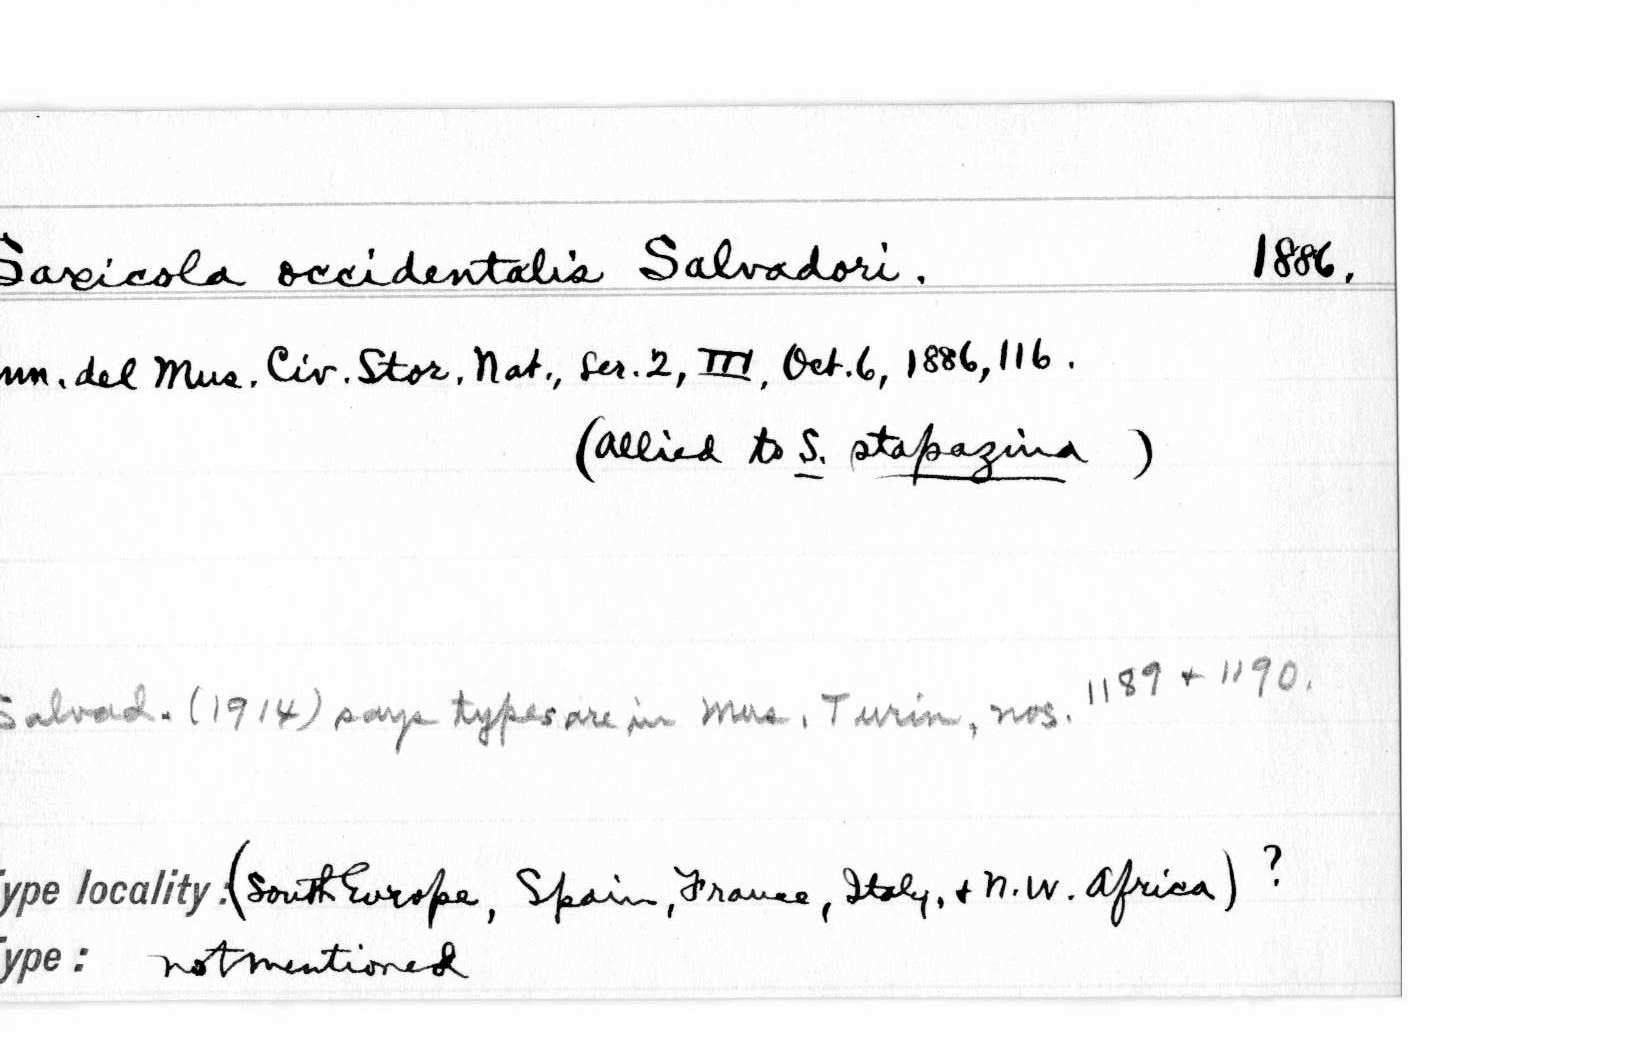 Saxicola occidentalis Salvadori. 1886.
nn. del Mus. Civ. Stor. Nat., Ser. 2, III, Oct. 6, 1886, 116.
(Allied to S. stapazina )
Salvad. (1914) says types are in Mus. Turin, nos. 1189 + 1190.
ype locality: (South Europe, Spain, France, Italy, + N.W. Africa) ?
ype: not mentioned